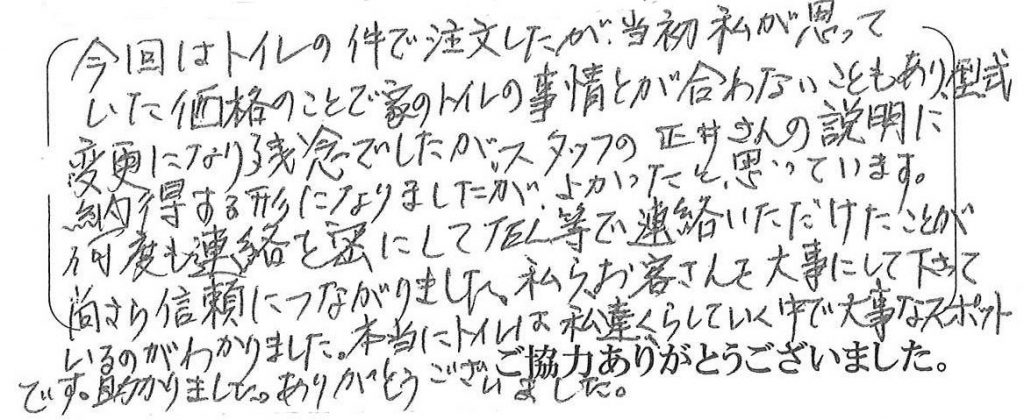 今回はトイレの件で注文したが、当初私が思って
いた価格のことで家のトイレの事情とが合わないこともあり、型式
変更になり残念でしたが、スタッフの正井さんの説明に
納得する形になりましたが、よかったと、思っています。
何度も連絡を密にしてTEL等で連絡いただけたことが
尚さら信頼につながりました。私らお客さんを大事にして下さって
いるのがわかりました。本当にトイレは私達くらしていく中で大事なスポット
です。助かりました。ありがとうございました。
ご協力ありがとうございました。